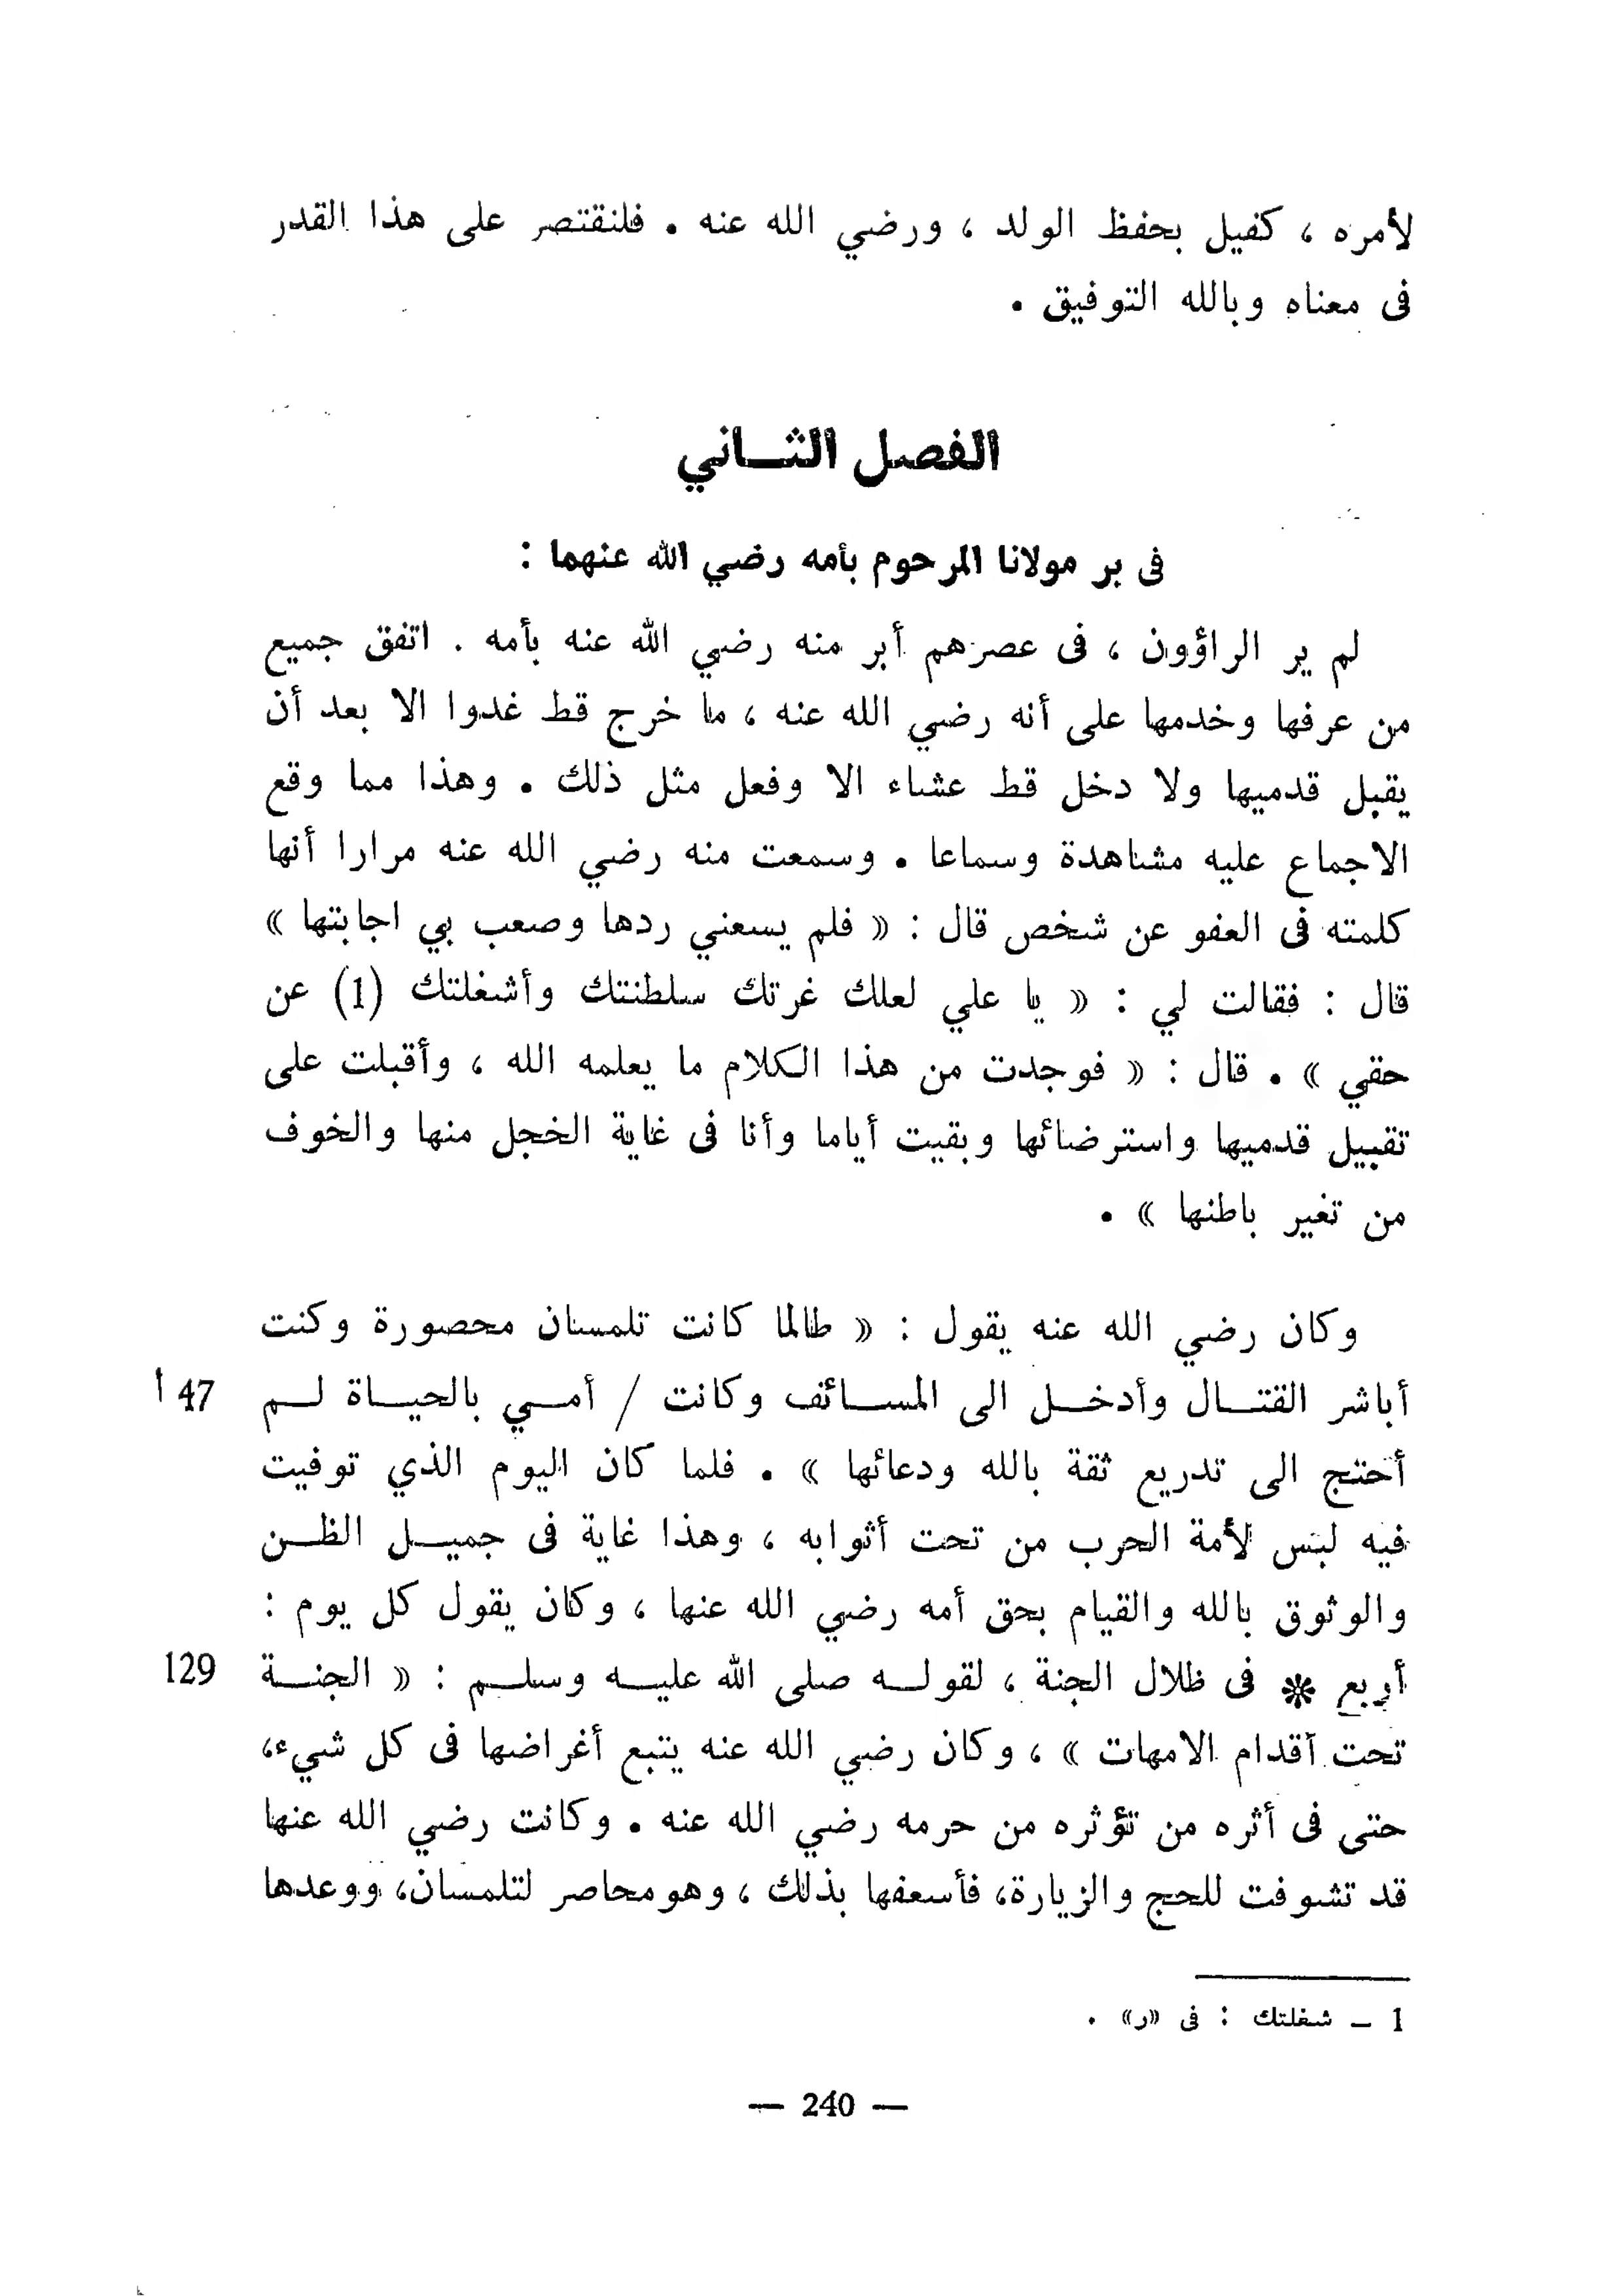 لأمره ، كفيل بحفظ الولد ، ورضي الله عنه . فلنقتصر على هذا القدر
فى معناه وبالله التوفيق .
الفصل الثــاني
فى بر مولانا المرحوم بأمه رضي الله عنهما :
لم ير الراؤون ، فى عصرهم أبر منه رضي الله عنه بأمه . اتفق جميع
من عرفها وخدمها على أنه رضي الله عنه ، ما خرج قط غدوا الا بعد أن
يقبل قدميها ولا دخل قط عشاء الا وفعل مثل ذلك . وهذا مما وقع
الاجماع عليه مشاهدة وسماعا . وسمعت منه رضي الله عنه مرارا أنها
كلمته فى العفو عن شخص قال : « فلم يسعني ردها وصعب بي اجابتها »
قال : فقالت لي : « يا علي لعلك غرتك سلطنتك وأشغلتك (1) عن
حقي » . قال : « فوجدت من هذا الكلام ما يعلمه الله ، وأقبلت على
تقبيل قدميها واسترضائها وبقيت أياما وأنا فى غاية الخجل منها والخوف
من تغير باطنها » .
وكان رضي الله عنه يقول : « طالما كانت تلمسان محصورة وكنت
أباشر القتــال وأدخــل الى المســائف وكانت / أمــي بالحيــاة لــم 47 أ
أحتج الى تدريع ثقة بالله ودعائها » . فلما كان اليوم الذي توفيت
فيه لبس لأمة الحرب من تحت أثوابه ، وهذا غاية فى جميــل الظــن
والوثوق بالله والقيام بحق أمه رضي الله عنها ، وكان يقول كل يوم :
أربع * فى ظلال الجنة ، لقولــه صلى الله عليــه وسلــم : « الجنــة 129
تحت أقدام الامهات » ، وكان رضي الله عنه يتبع أغراضها فى كل شيء،
حتى فى أثره من تؤثره من حرمه رضي الله عنه . وكانت رضي الله عنها
قد تشوفت للحج والزيارة، فأسعفها بذلك ، وهو محاصر لتلمسان، ووعدها
1 – شغلتك : فى «ر» .
— 240 —